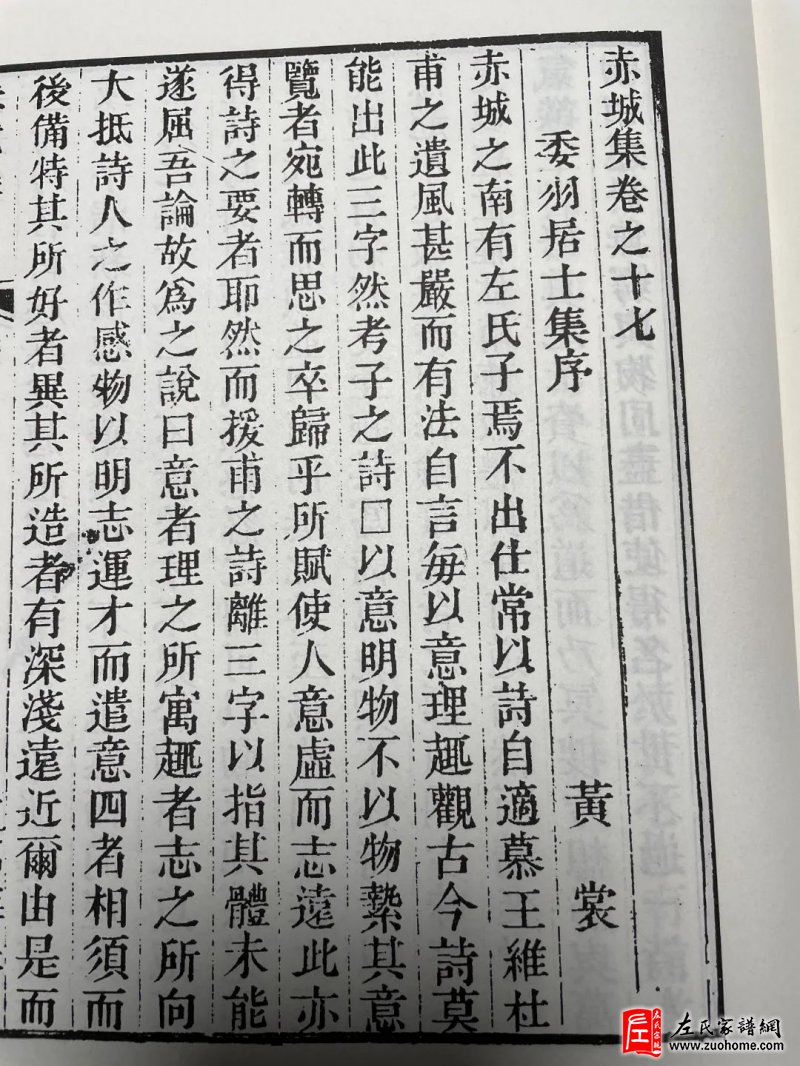 赤城集卷之十七
委羽居士集序
黃裳
赤城之南有左氏子焉不出仕常以詩自適慕王維杜
甫之遺風甚嚴而有法自言每以意理趣觀古今詩莫
能出此三字然考子之詩□以意明物不以物縶其意
覽者宛轉而思之卒歸乎所賦使人意虛而志遠此亦
得詩之要者耶然而援甫之詩離三字以指其體未能
遂屈吾論故為之說曰意者理之所寓趣者志之所向
大抵詩人之作感物以明志運才而遣意四者相須而
後備特其所好者異其所造者有深淺遠近爾由是而
左氏家譜網
www.zuohome.com